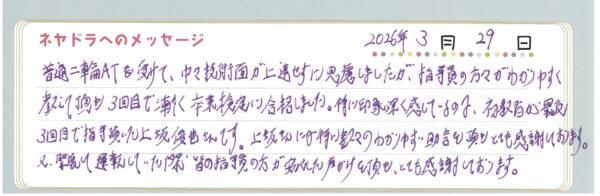 ネヤドラへのメッセージ 2026年 3月 29日
普通二輪ATを受けて、中々技術面が上達せずに思慮しましたが、指導員の方々がわかりやすく
教えて頂き3回目で漸く卒業検定に合格しました。特に印象深く感じているのは、
3回目で指導頂いた上坂 さんです。上坂さんには特に数々のわかりやすい助言を頂きとても感謝しております。
又、緊張して運転していた際 皆の指導員の方が 声がけを頂き、とても感謝しております。